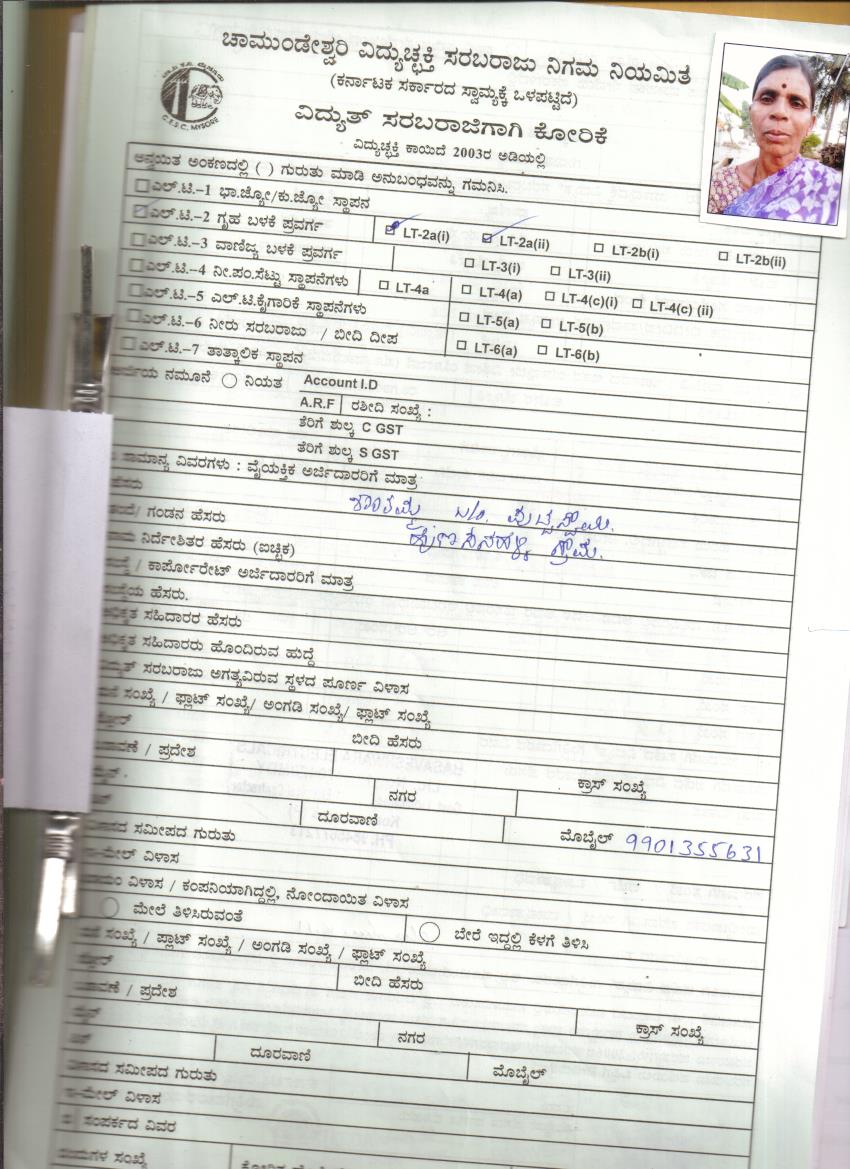 ಚಾಮುಂಡೇಶ್ವರಿ ವಿದ್ಯುಚ್ಛಕ್ತಿ ಸರಬರಾಜು ನಿಗಮ ನಿಯಮಿತ
(ಕರ್ನಾಟಕ ಸರ್ಕಾರದ ಸ್ವಾಮ್ಯಕ್ಕೆ ಒಳಪಟ್ಟಿದೆ)
C.E.S.C, MYSORE
ವಿದ್ಯುತ್ ಸರಬರಾಜಿಗಾಗಿ ಕೋರಿಕೆ
ವಿದ್ಯುಚ್ಛಕ್ತಿ ಕಾಯಿದೆ 2003ರ ಅಡಿಯಲ್ಲಿ
ಅನ್ವಯಿತ ಅಂಕಣದಲ್ಲಿ ( ) ಗುರುತು ಮಾಡಿ ಅನುಬಂಧವನ್ನು ಗಮನಿಸಿ.
ಎಲ್.ಟಿ.–1 ಭಾ.ಜ್ಯೋ/ಕು.ಜ್ಯೋ ಸ್ಥಾಪನ
ಎಲ್.ಟಿ.–2 ಗೃಹ ಬಳಕೆ ಪ್ರವರ್ಗ LT-2a(i) LT-2a(ii) LT-2b(i) LT-2b(ii)
ಎಲ್.ಟಿ.–3 ವಾಣಿಜ್ಯ ಬಳಕೆ ಪ್ರವರ್ಗ LT-3(i) LT-3(ii)
ಎಲ್.ಟಿ.–4 ನೀ.ಪಂ.ಸೆಟ್ಟು ಸ್ಥಾಪನೆಗಳು LT-4a LT-4(a) LT-4(c)(i) LT-4(c) (ii)
ಎಲ್.ಟಿ.–5 ಎಲ್.ಟಿ.ಕೈಗಾರಿಕೆ ಸ್ಥಾಪನೆಗಳು LT-5(a) LT-5(b)
ಎಲ್.ಟಿ.–6 ನೀರು ಸರಬರಾಜು / ಬೀದಿ ದೀಪ LT-6(a) LT-6(b)
ಎಲ್.ಟಿ.–7 ತಾತ್ಕಾಲಿಕ ಸ್ಥಾಪನ
ಅರ್ಜಿಯ ನಮೂನೆ ನಿಯತ Account I.D
A.R.F ರಶೀದಿ ಸಂಖ್ಯೆ :
ತೆರಿಗೆ ಶುಲ್ಕ C GST
ತೆರಿಗೆ ಶುಲ್ಕ S GST
ಸಾಮಾನ್ಯ ವಿವರಗಳು : ವೈಯಕ್ತಿಕ ಅರ್ಜಿದಾರರಿಗೆ ಮಾತ್ರ
ಹೆಸರು ಶಾಂತಮ್ಮ
ಗಂಡನ ಹೆಸರು
ನಿರ್ದೇಶಿತರ ಹೆಸರು (ಐಚ್ಛಿಕ)
/ ಕಾರ್ಪೋರೇಟ್ ಅರ್ಜಿದಾರರಿಗೆ ಮಾತ್ರ
ಹೆಸರು.
ಅಧಿಕೃತ ಸಹಿದಾರರ ಹೆಸರು
ಅಧಿಕೃತ ಸಹಿದಾರರು ಹೊಂದಿರುವ ಹುದ್ದೆ
ವಿದ್ಯುತ್ ಸರಬರಾಜು ಅಗತ್ಯವಿರುವ ಸ್ಥಳದ ಪೂರ್ಣ ವಿಳಾಸ
ಸಂಖ್ಯೆ / ಫ್ಲಾಟ್ ಸಂಖ್ಯೆ/ ಅಂಗಡಿ ಸಂಖ್ಯೆ/ ಫ್ಲಾಟ್ ಸಂಖ್ಯೆ
ಬೀದಿ ಹೆಸರು
/ ಪ್ರದೇಶ ಕ್ರಾಸ್ ಸಂಖ್ಯೆ
ನಗರ
ದೂರವಾಣಿ ಮೊಬೈಲ್ 9901355631
ಸಮೀಪದ ಗುರುತು
ಇ–ಮೇಲ್ ವಿಳಾಸ
ವಿಳಾಸ / ಕಂಪನಿಯಾಗಿದ್ದಲ್ಲಿ, ನೋಂದಾಯಿತ ವಿಳಾಸ
ಮೇಲೆ ತಿಳಿಸಿರುವಂತೆ ಬೇರೆ ಇದ್ದಲ್ಲಿ ಕೆಳಗೆ ತಿಳಿಸಿ
ಸಂಖ್ಯೆ / ಪ್ಲಾಟ್ ಸಂಖ್ಯೆ / ಅಂಗಡಿ ಸಂಖ್ಯೆ / ಫ್ಲಾಟ್ ಸಂಖ್ಯೆ
ಬೀದಿ ಹೆಸರು
/ ಪ್ರದೇಶ ಕ್ರಾಸ್ ಸಂಖ್ಯೆ
ನಗರ
ದೂರವಾಣಿ ಮೊಬೈಲ್
ವಿಳಾಸದ ಸಮೀಪದ ಗುರುತು
ಇ–ಮೇಲ್ ವಿಳಾಸ
ಸಂಪರ್ಕದ ವಿವರ